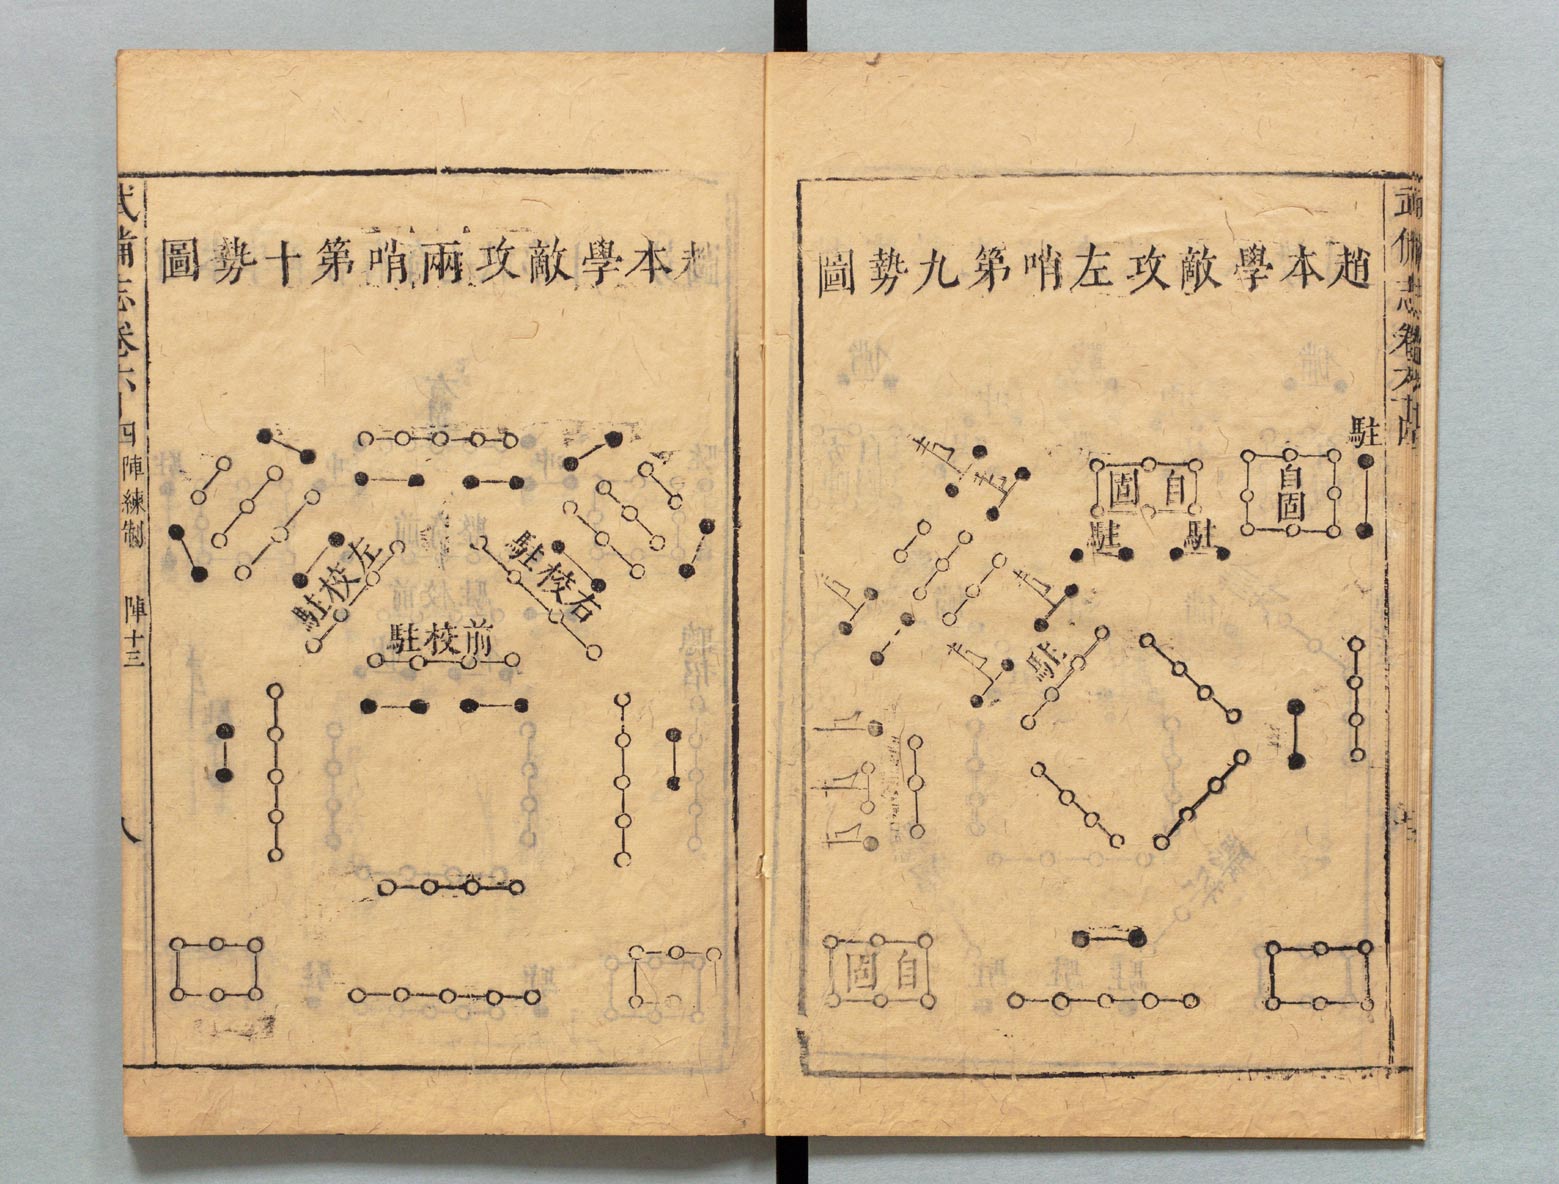 趙本學敵攻左哨第九勢圖
駐
自固
自固
駐
駐
駐
自固
趙本學敵攻兩哨第十勢圖
右校駐
左校駐
前校駐
武備志卷六十四
陣練制
陣十三